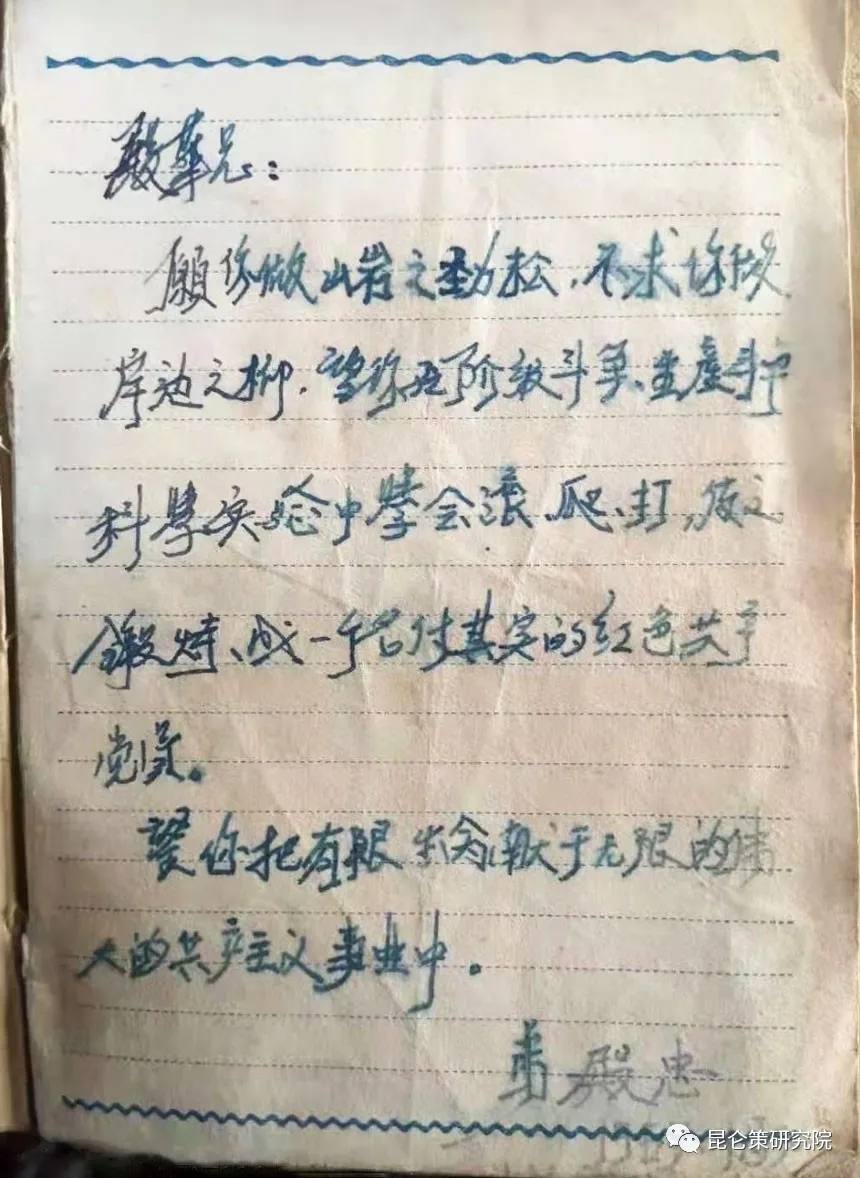 殿華兄：
願你做山岩之勁松，不求你做
岸边之柳，望你在阶级斗争、生產斗争
科學实验中學会滚、爬、打，
鍛炼、成一个名付其实的红色共产
党员。
望你把有限生命献于无限的伟
大的共产主义事业中。
弟殿忠
昆仑策研究院